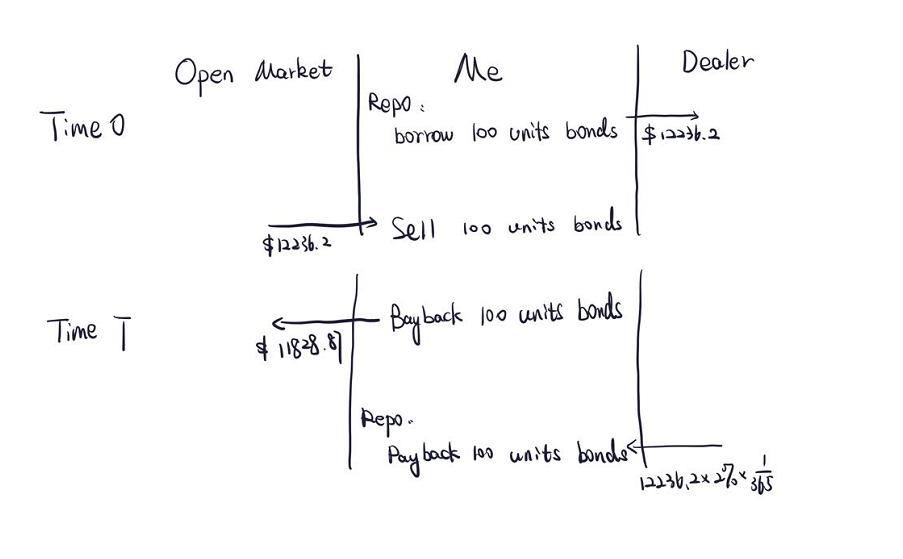 Open Market Me Dealer
Time 0
Repo:
borrow 100 units bonds
$12236.2
Sell 100 units bonds
$12236.2
Time T
Bayback 100 units bonds
$ 11828.87
Repo.
Payback 100 units bonds
12236.2 × 2% × 1/365